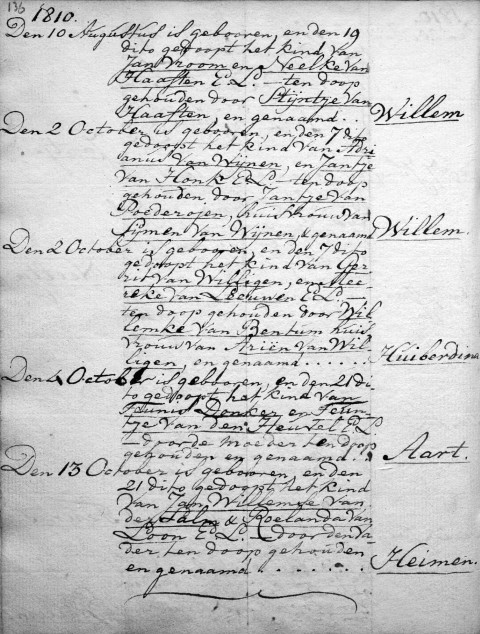 136
1810.
Den 10 Augustus is gebooren, en den 19
dito gedoopt het kind, van
Jan Vroom en Neelke van
Haaften E L. - ten doop
gehouden door Stijntje van
Haaften, en genaamd . . Willem
Den 2 October is gebooren, en den 7 dito
gedoopt het kind van Adri
anus van Wijnen, en Jantje
van Honk E L - ten doop
gehouden, door Jantje van
Poederojen, huisvrouw van
Sijmen van Wijnen, & genaamd Willem.
Den 2 October is gebooren, en den 7 dito
gedoopt het kind van Ger
rit van Willigen, en
reke van Leeuwen E L. -
ten doop gehouden door Wil
lemke van Bentum huis
vrouw van Ariën van Wil
ligen, en genaamd . . . . . . Huiberdina
Den 4 October is gebooren, en den 21 di
to gedoopt het kind van
Teunis Donker en Teun
tje van den Heuvel E L
- door de moeder ten doop
gehouden en genaamd . . Aart.
Den 13 October is gebooren, en den
21 dito gedoopt het kind
van Jan Willemse van
der Salm & Roelanda van
Loon E L. - door den va
der ten doop gehouden
en genaamd . . . . . . . Heimen.